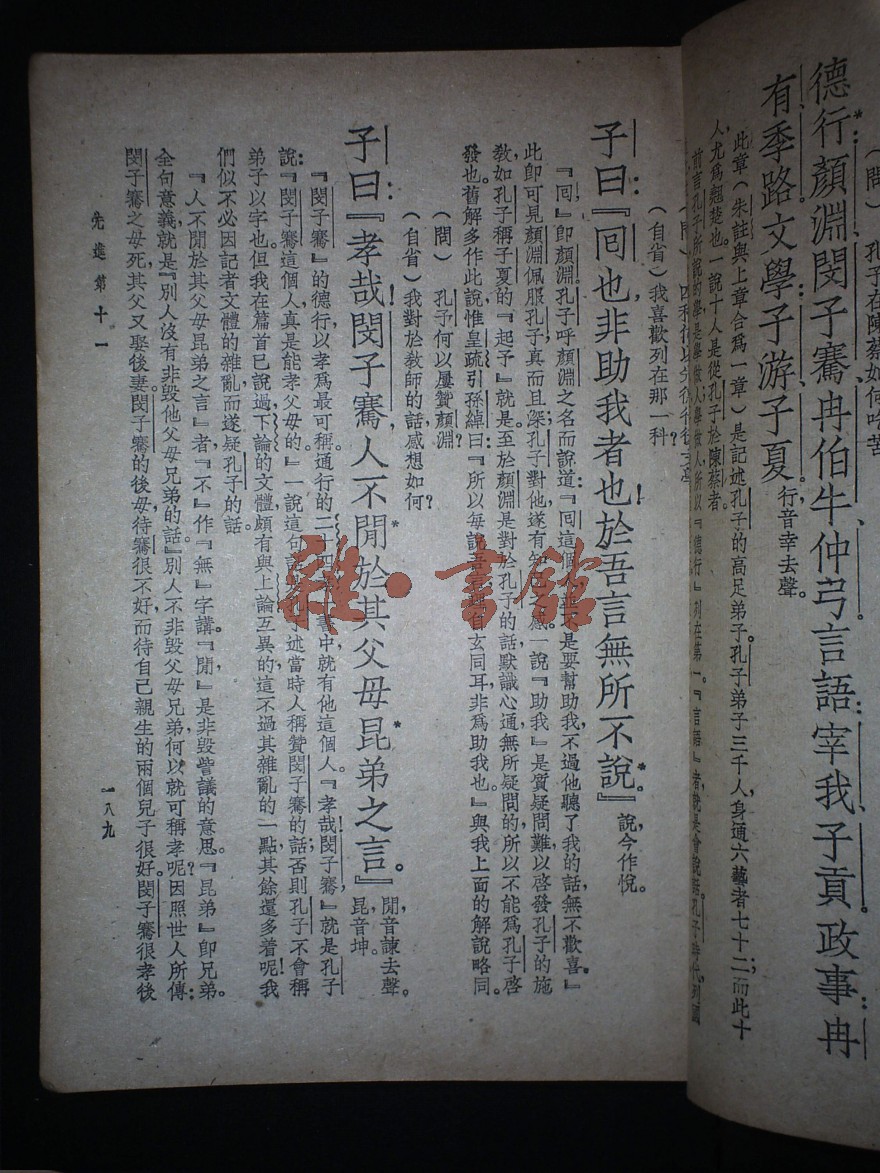 孔子在陳蔡如何吃苦
德行：顏淵、閔子騫、冉伯牛、仲弓。言語：宰我、子貢。政事：冉
有、季路。文學：子游、子夏。行，音幸，去聲。
此章（朱註與上章合爲一章）是記述孔子的高足弟子。孔子弟子三千人，身通六藝者七十二；而此十
人尤爲翹楚也。一說十人是從孔子於陳蔡者。
前言孔子所說的學，是學做人；學做人，所以『德行』列在第一。『言語』者，就是會說話。孔子時代，列國
（自省）我喜歡列在那一科？
子曰：『回也，非助我者也！於吾言無所不說。』說，今作悅。
『回』卽顏淵。孔子呼顏淵之名而說道：『回這個人，並不是要幫助我，不過他聽了我的話，無不歡喜。』
此卽可見顏淵佩服孔子，真而且深；孔子對他遂有知己之感。一說『助我』是質疑問難，以啓發孔子的施
教，如孔子稱子夏的『起予』就是。至於顏淵是對於孔子的話，默識心通，無所疑問的，所以不能爲孔子啓
發也。舊解多作此說，惟皇疏引孫綽曰：『所以每說吾言，理自玄同耳，非爲助我也。』與我上面的解說略同。
（問）孔子何以屢贊顏淵？
（自省）我對於教師的話，感想如何？
子曰：『孝哉閔子騫！人不間於其父母昆弟之言。』間，音諫，去聲。昆，音坤。
『閔子騫』的德行，以孝爲最可稱。通行的二十四孝書中，就有他這個人。『孝哉閔子騫！』就是孔子
說：『閔子騫這個人，真是能孝父母的。』一說這句話是孔子述當時人稱贊閔子騫的話；否則孔子不會稱
弟子以字也。但我在篇首已說過，下論的文體，頗有與上論互異的，這不過其雜亂的一點，其餘還多着呢！我
們似不必因記者文體的雜亂，而遂疑孔子的話。
『人不間於其父母昆弟之言』者，『不』作『無』字講。『間』是非毀訾議的意思。『昆弟』卽兄弟。
全句意義，就是『別人沒有非毀他父母兄弟的話。』別人不非毀父母兄弟，何以就可稱孝呢？因照世人所傳：
閔子騫之母死，其父又娶後妻。閔子騫的後母，待騫很不好，而待自己親生的兩個兒子很好。閔子騫很孝後
先進第十一
一八九
雜·書館